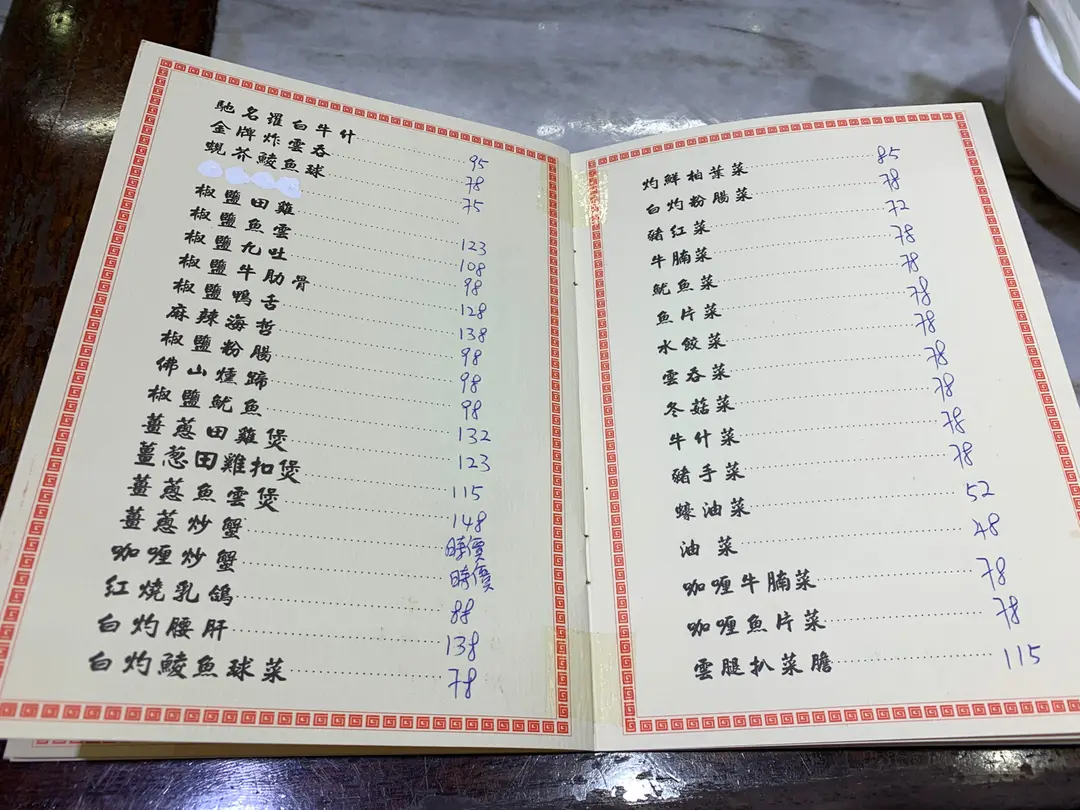 馳名羅白牛什 95
金牌炸雲吞 78
蜆芥鯪魚球 75
椒鹽田雞 123
椒鹽魚雲 108
椒鹽九吐 98
椒鹽牛肋骨 128
椒鹽鴨舌 138
麻辣海哲 98
椒鹽粉腸 98
佛山燻蹄 98
椒鹽魷魚 132
薑蔥田雞煲 123
薑蔥田雞扣煲 115
薑蔥魚雲煲 148
薑蔥炒蟹 時價
咖喱炒蟹 時價
紅燒乳鴿 88
白灼腰肝 138
白灼鯪魚球菜 78
灼鮮柏葉菜 85
白灼粉腸菜 78
豬紅菜 72
牛腩菜 78
魷魚菜 78
魚片菜 78
水餃菜 78
雲吞菜 78
冬菇菜 78
牛什菜 78
豬手菜 78
蠔油菜 52
油菜 48
咖喱牛腩菜 78
咖喱魚片菜 78
雲腿扒菜膽 115